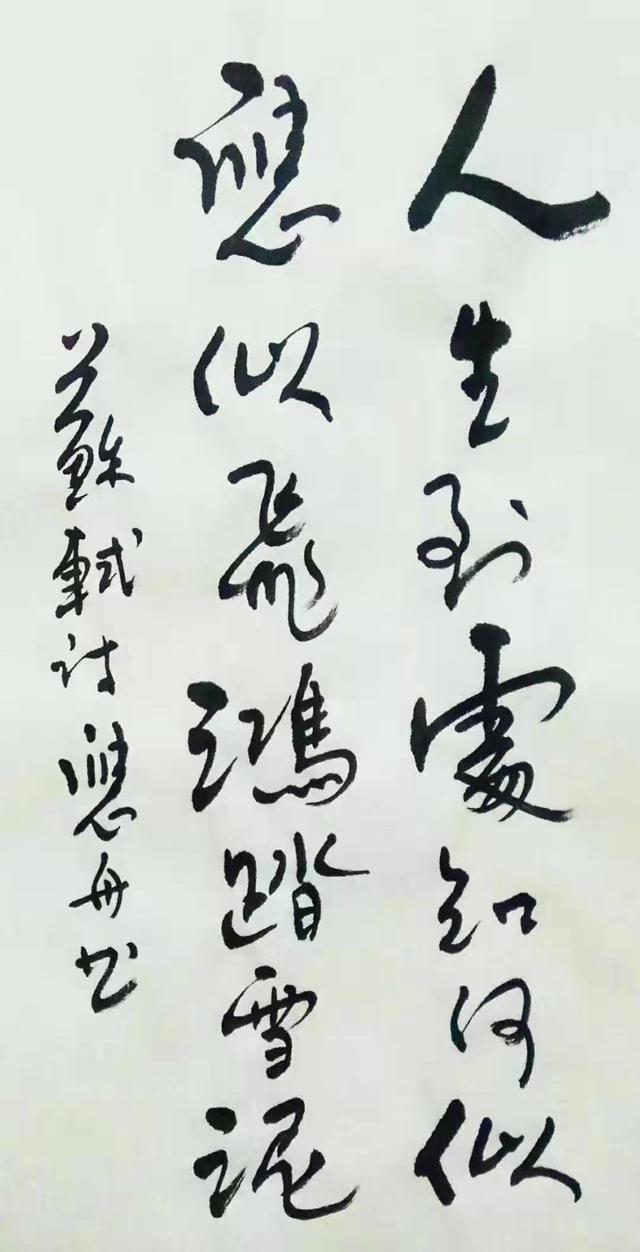 人生到處知何似
應似飛鴻踏雪泥
蘇軾詩應舟书